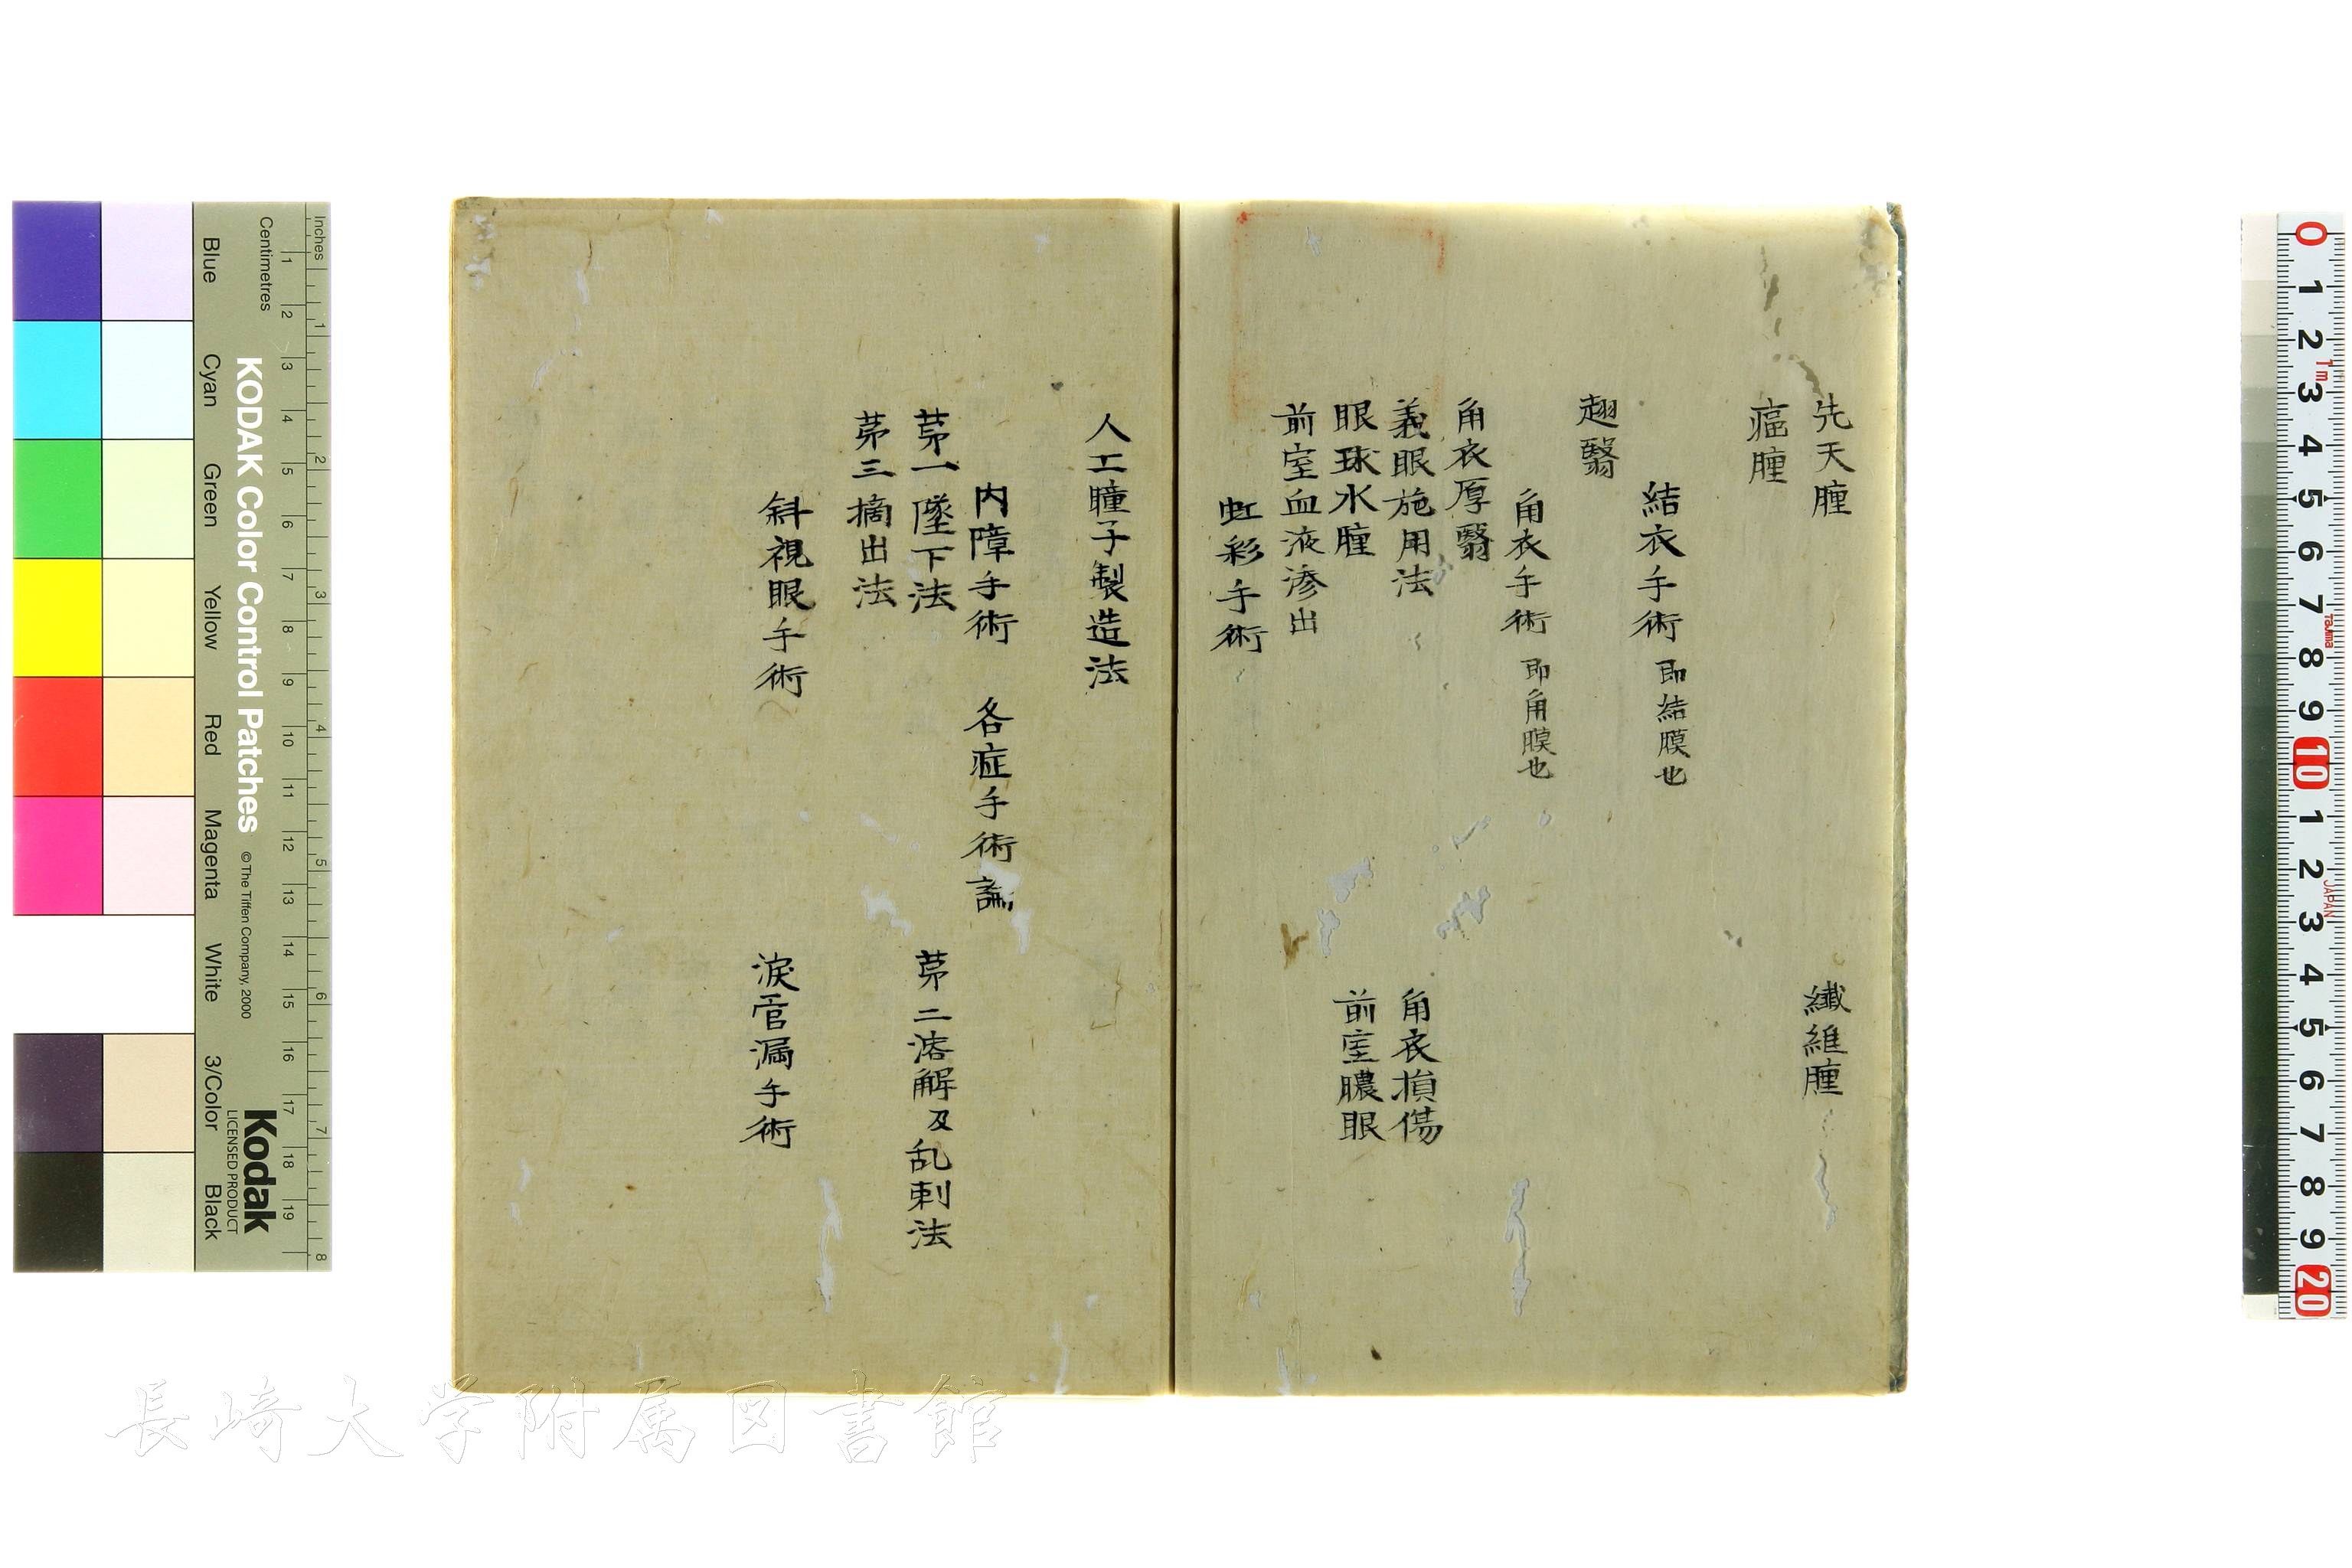 先天腫
纖維腫
瘟腫
結衣手術 即結膜也
翅翳
角衣手術 即角膜也
角衣厚翳
義眼施用法
角衣損傷
眼球水腫
前室膿眼
前室血液滲出
虹彩手術
人工瞳子製造法
内障手術 各症手術論
苐一墜下法
苐二溶解及乱刺法
苐三摘出法
斜視眼手術
涙管漏手術
長崎大学附属図書館
KODAK Color Control Patches
©The Tiffen Company, 2000
Kodak
LICENSED PRODUCT
Inches
1 2 3 4 5 6 7 8
Centimetres
1 2 3 4 5 6 7 8 9 10 11 12 13 14 15 16 17 18 19
Blue
Cyan
Green
Yellow
Red
Magenta
White
3/Color
Black
0 1 2 3 4 5 6 7 8 9 10 1 2 3 4 5 6 7 8 9 20
1m
Tajima
JAPAN